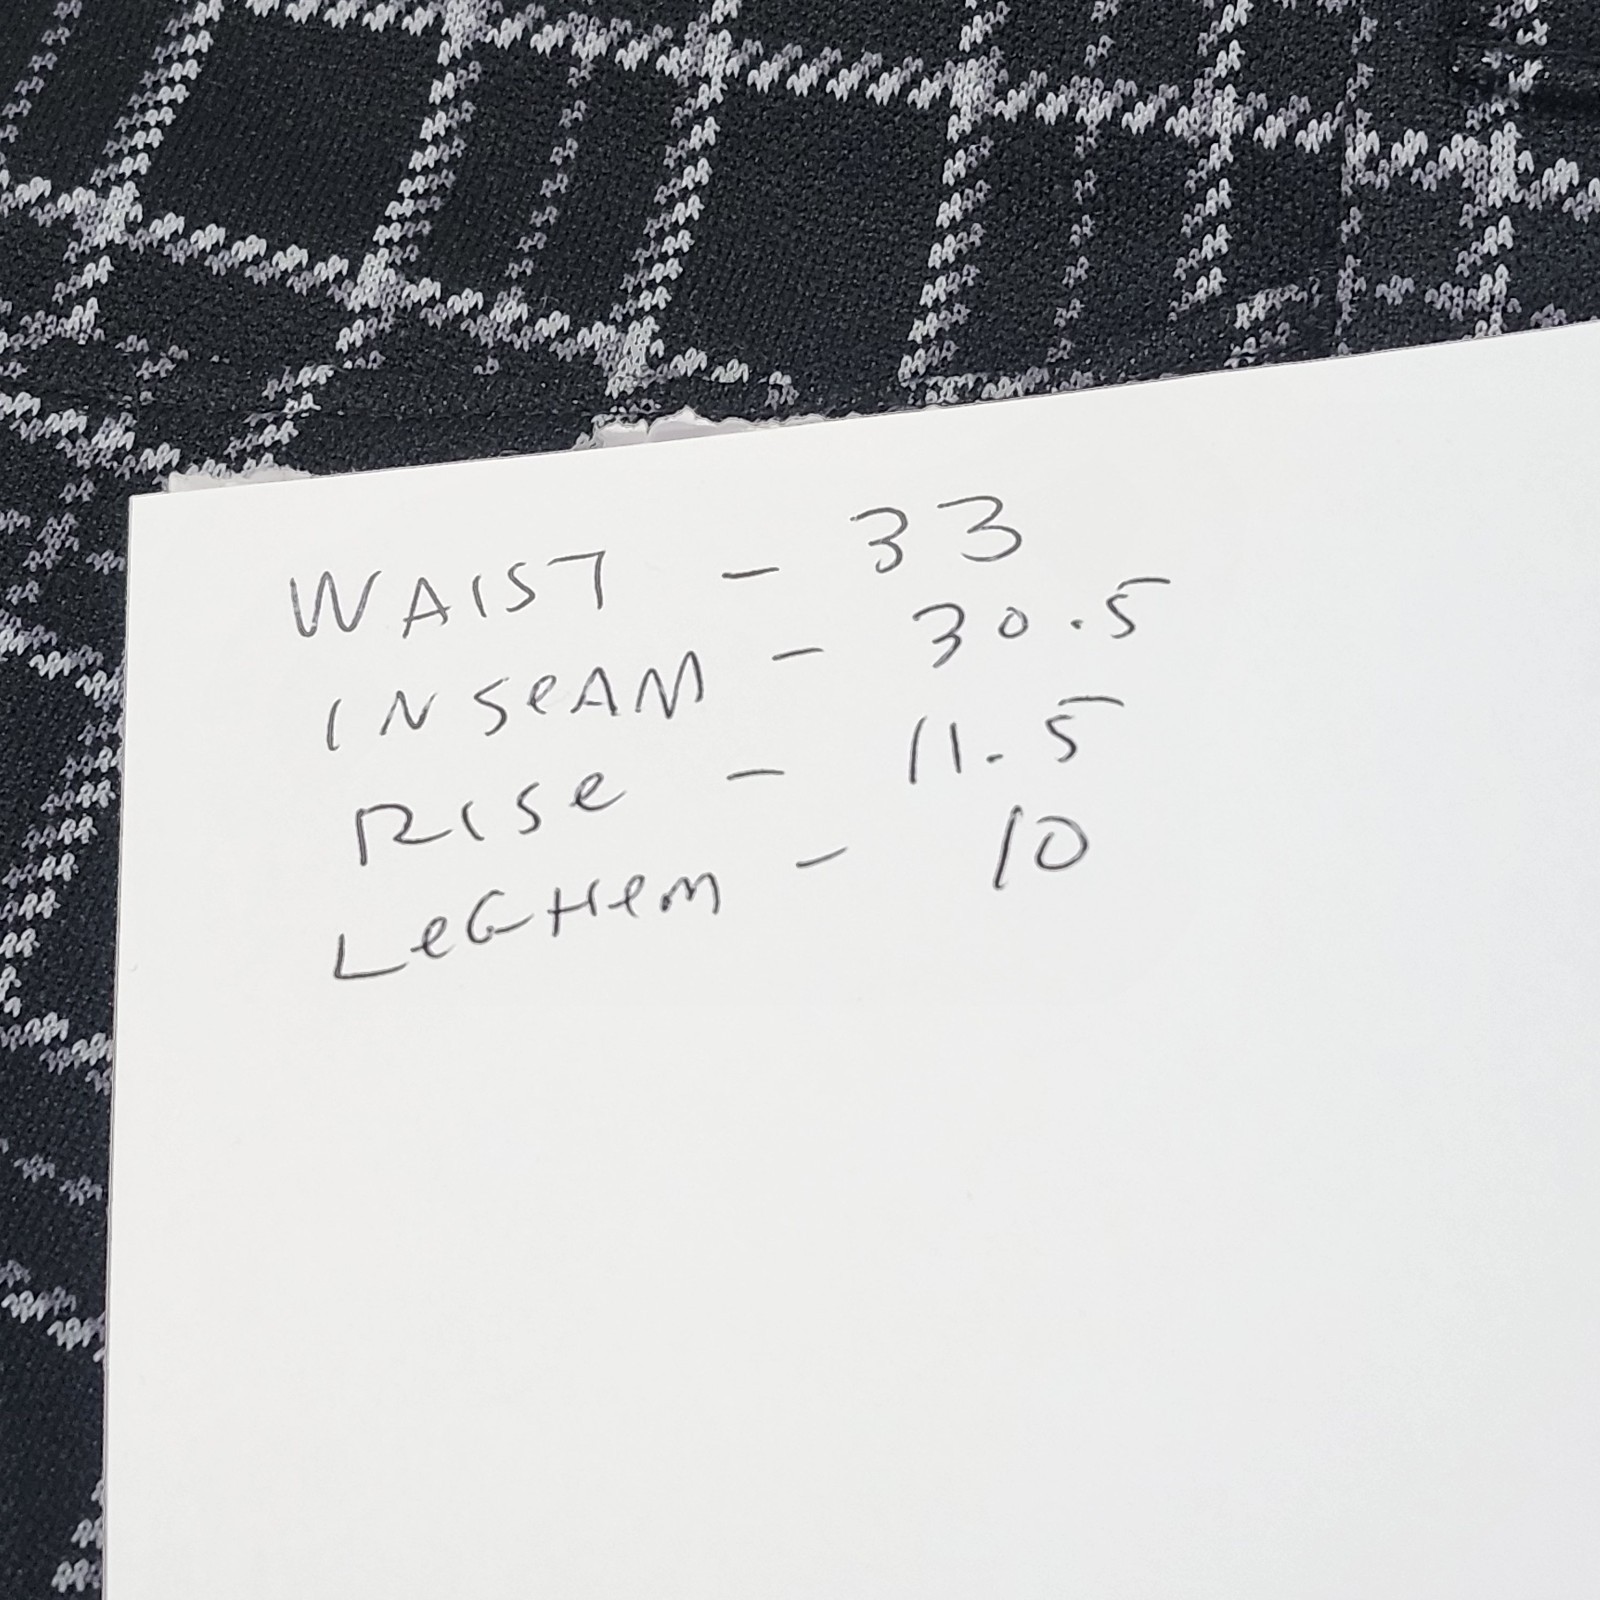 WAIST - 33
INSeAM - 30.5
RISe - 11.5
LeGHem - 10